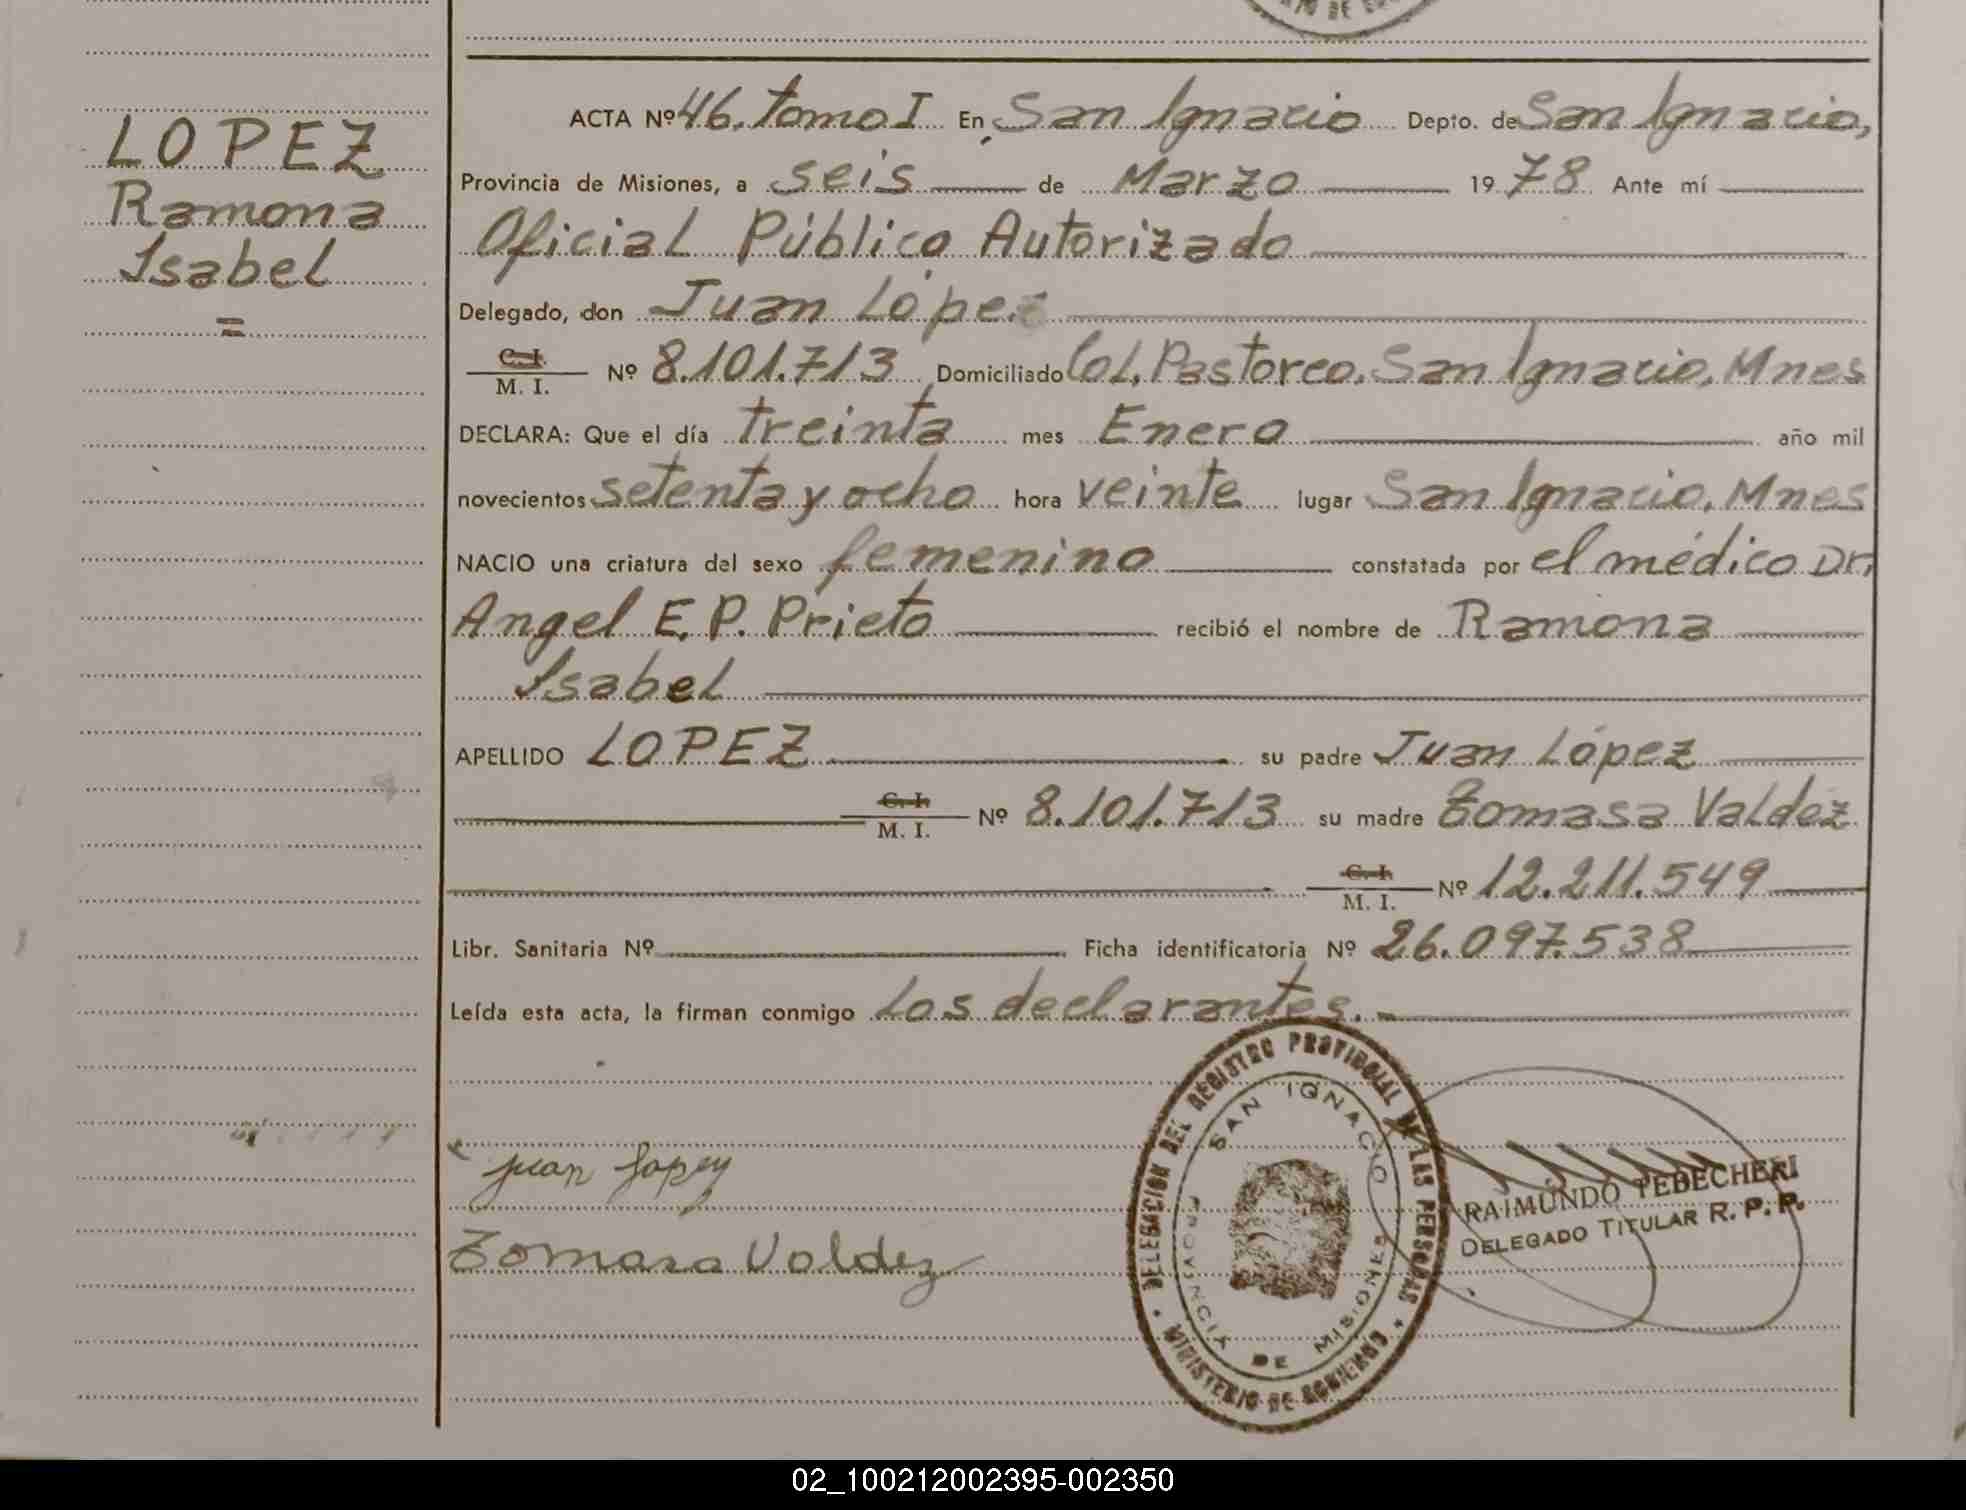 LOPEZ
Ramona
Isabel
=
ACTA Nº 46. tomo I En San Ignacio Depto. de San Ignacio,
Provincia de Misiones, a seis de Marzo 1978 Ante mí
Oficial Público Autorizado
Delegado, don Juan López
C. I.
M. I. Nº 8.101.713 Domiciliado Col. Pastoreo. San Ignacio, Mnes
DECLARA: Que el día treinta mes Enero año mil
novecientos setenta y ocho hora veinte lugar San Ignacio, Mnes
NACIO una criatura del sexo femenino constatada por el médico Dr.
Angel E. P. Prieto recibió el nombre de Ramona
Isabel
APELLIDO LOPEZ su padre Juan López
C. I.
M. I. Nº 8.101.713 su madre Tomasa Valdez
C. I.
M. I. Nº 12.211.549
Libr. Sanitaria Nº Ficha identificatoria Nº 26.097.538
Leída esta acta, la firman conmigo los declarantes.-
Juan Lopez
Tomasa Valdez
DELEGACION DEL REGISTRO PROVINCIAL DE LAS PERSONAS
MINISTERIO DE GOBIERNO
SAN IGNACIO
PROVINCIA DE MISIONES
RAIMUNDO TEBECHERI
DELEGADO TITULAR R. P. P.
02_100212002395-002350